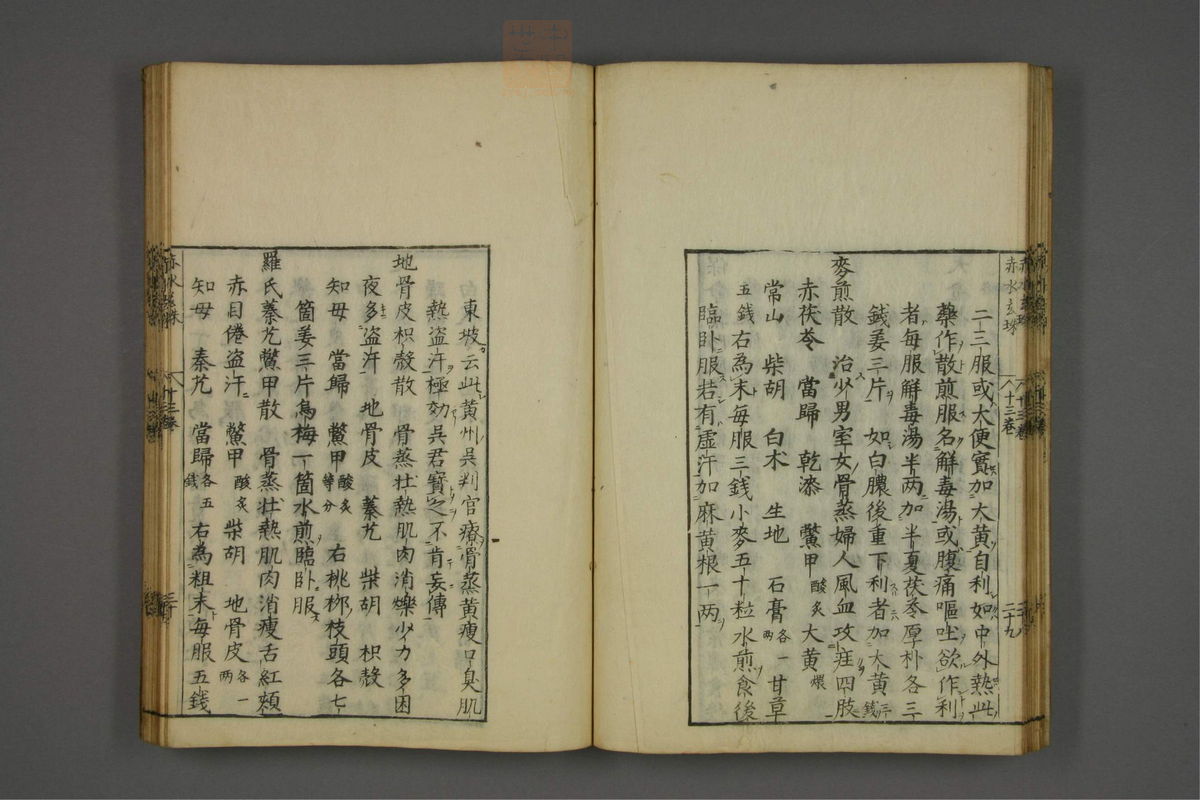 赤水玄珠 十三卷 二十九
二三服或大便實加大黃自利如中外熱此
藥作散煎服名解毒湯或腹痛嘔吐欲作利
者每服解毒湯半兩加半夏茯苓厚朴各三
錢姜三片 如白膿後重下利者加大黃三錢
麥煎散 治少男室女骨蒸婦人風血攻疰四肢
赤茯苓 當歸 乾漆 鱉甲酸炙 大黃煨
常山 柴胡 白朮 生地 石膏各一兩 甘草
五錢 右為末每服三錢小麥五十粒水煎食後
臨臥服若有虛汗加麻黃根一兩
東坡云此黃州吳判官療骨蒸黃瘦口臭肌
熱盜汗極効吳君寶之不肯妄傳
地骨皮枳殼散 骨蒸壯熱肌肉消爍少力多困
夜多盜汗 地骨皮 蓁艽 柴胡 枳殼
知母 當歸 鱉甲酸炙等分 右桃柳枝頭各七
箇姜三片烏梅一箇水煎臨臥服
羅氏蓁艽鱉甲散 骨蒸壯熱肌肉消瘦舌紅頰
赤目倦盜汗 鱉甲酸炙 柴胡 地骨皮各一兩
知母 秦艽 當歸各五錢 右為粗末每服五錢
赤水玄珠 十三卷 三十